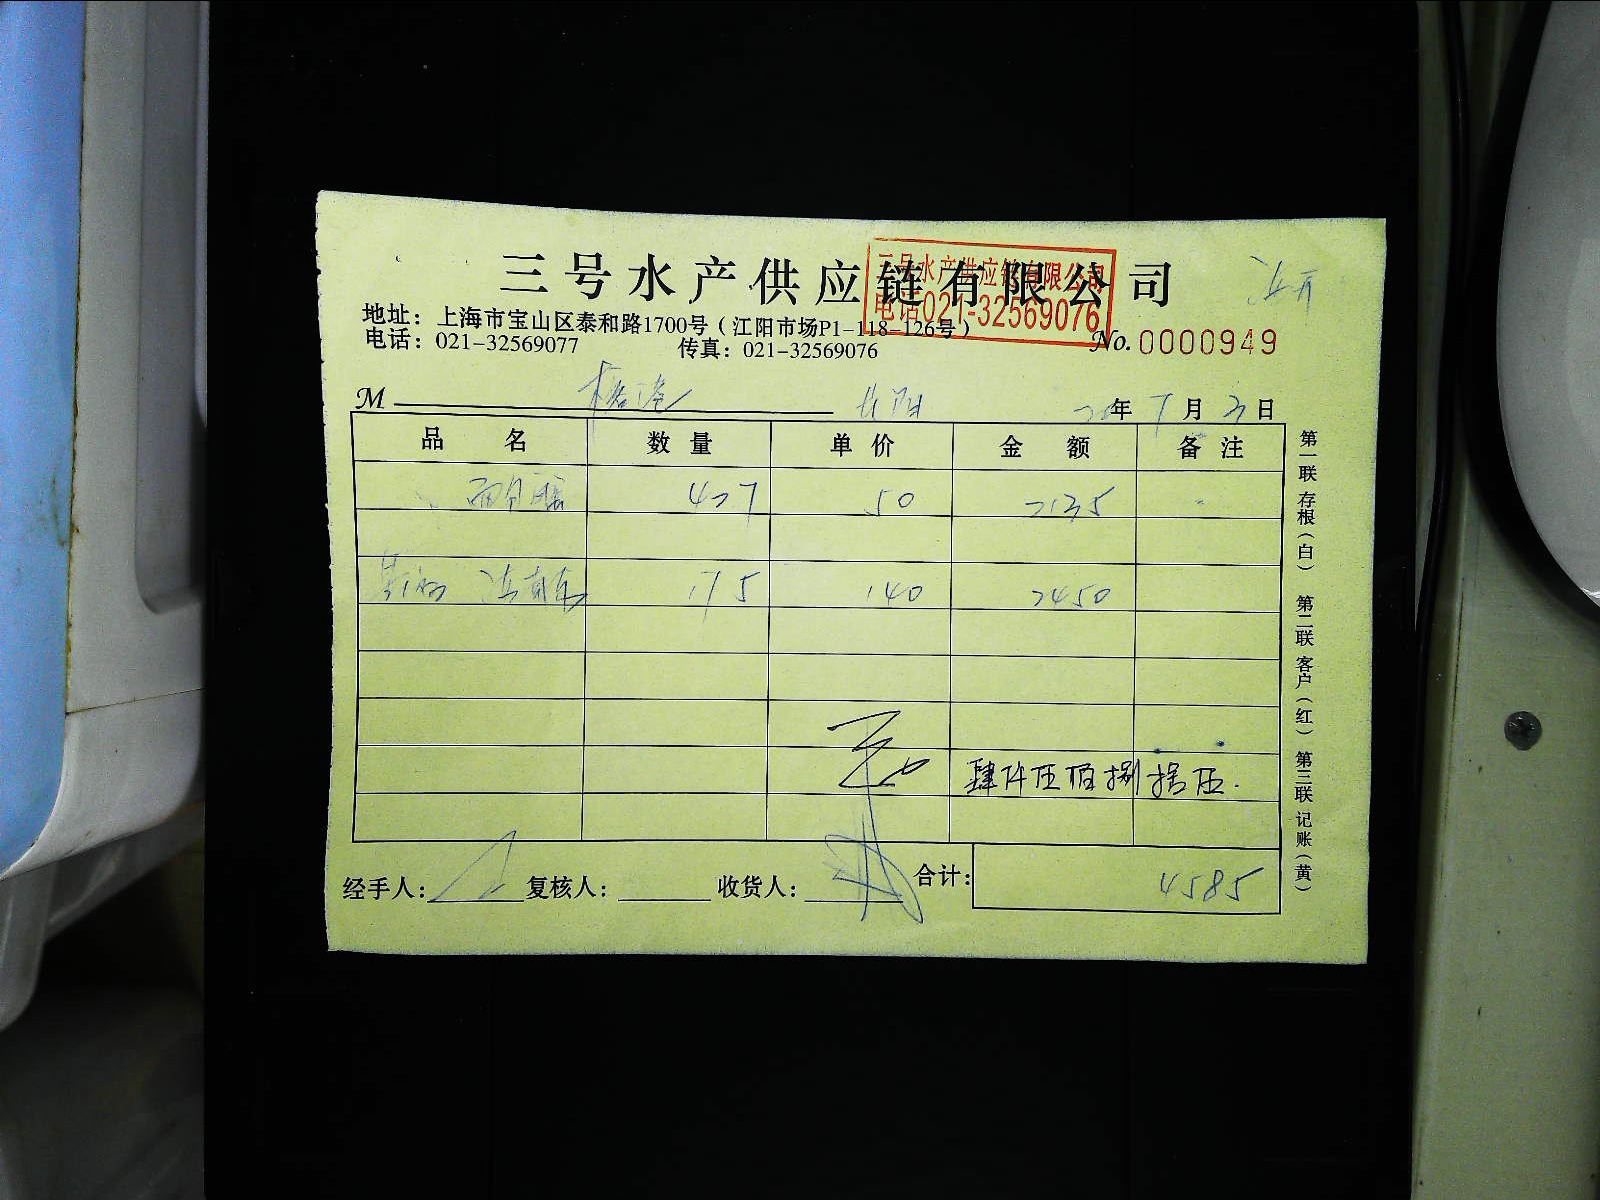 三号水产供应链有限公司
三号水产供应链有限公司
电话021-32569076
地址：上海市宝山区泰和路1700号（江阳市场P1-118-126号）
电话：021-32569077 传真：021-32569076
No.0000949
M 年 7 月 3 日
品名 数量 单价 金额 备注
427 50 2135
175 140 2450
肆仟伍佰捌拾伍.
经手人： 复核人： 收货人： 合计： 4585
第一联 存根（白） 第二联 客户（红） 第三联 记账（黄）